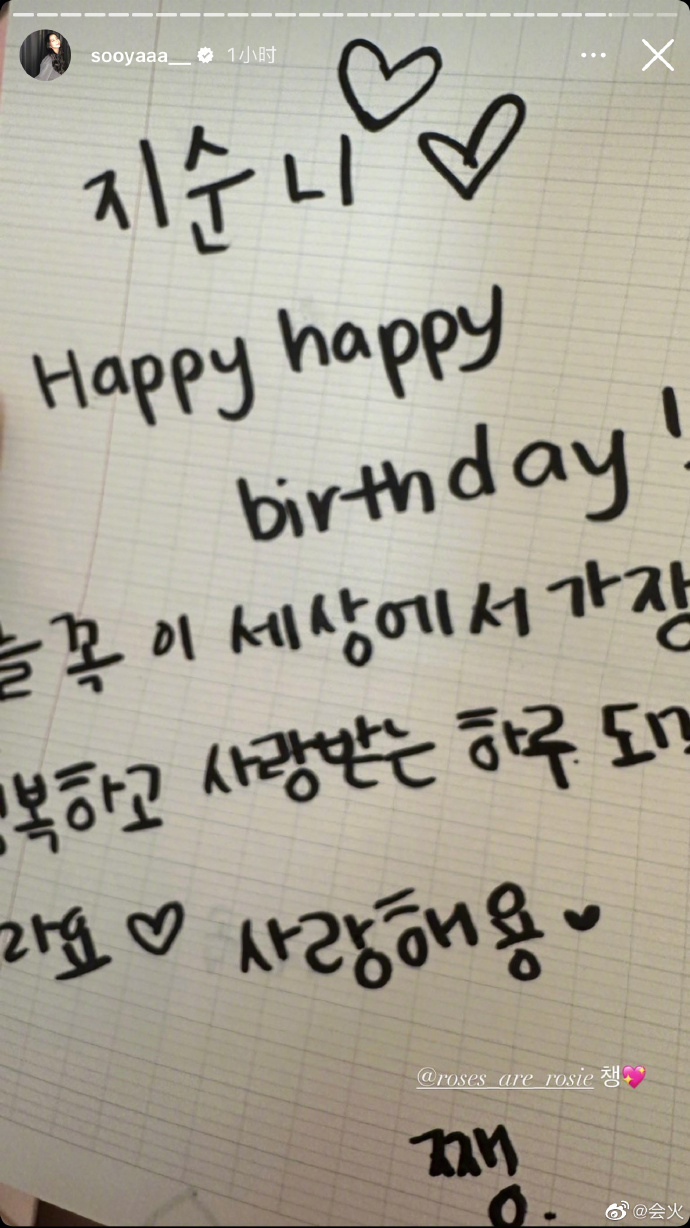 sooyaaa__ 1小时
지순니
Happy happy
birthday!
늘 꼭 이 세상에서 가장
복하고 사랑받는 하루
라요 ♡ 사랑해용 ♥
@roses_are_rosie 챙💖
쨍.
@会火